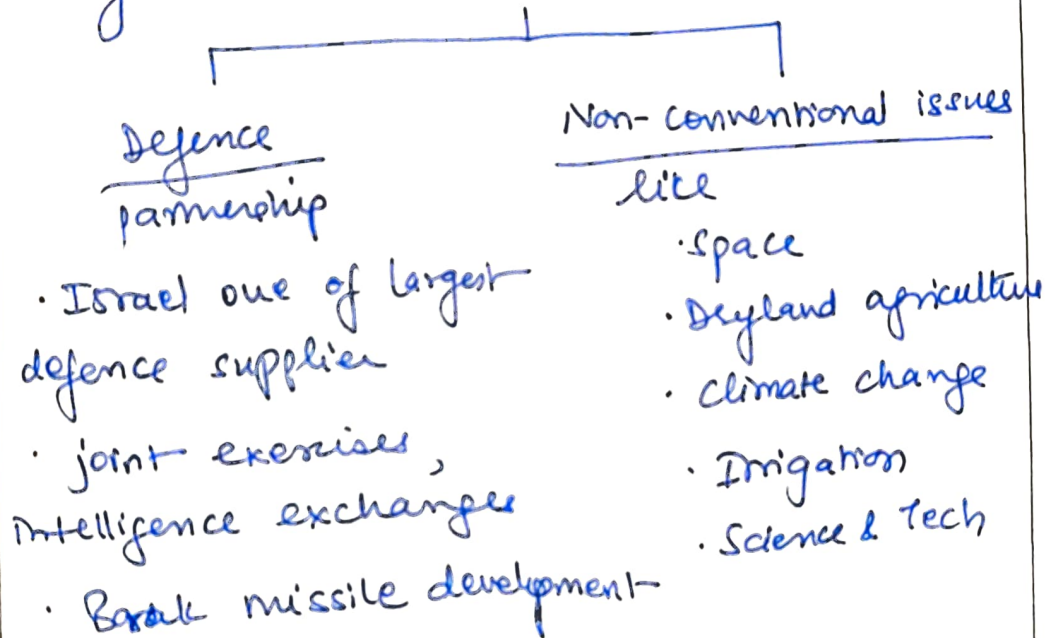 Defence
partnership
· Israel one of largest
defence supplier
· joint exercises,
intelligence exchanges
· Barak missile development
Non-conventional issues
like
· Space
· Dryland agriculture
· Climate change
· Irrigation
· Science & Tech